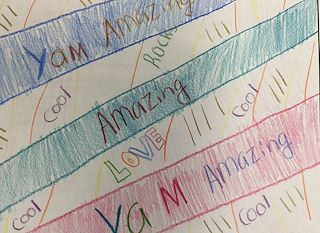 Yam Amazing
Rock
Cool
Amazing
Cool
LOVE
Ya M Amazing
Cool
Cool